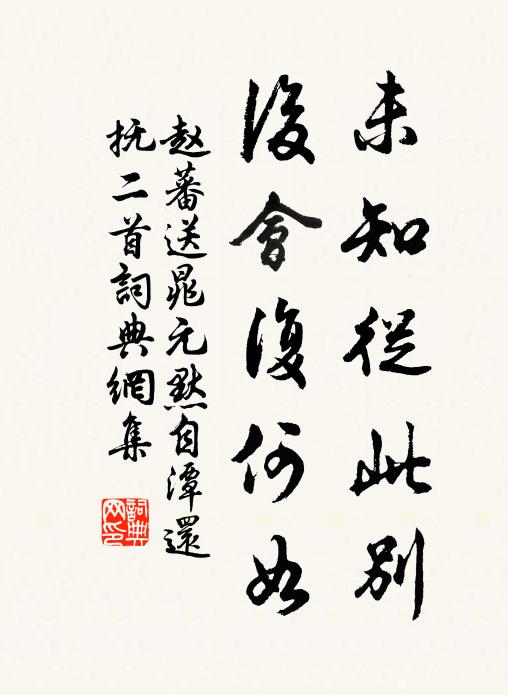 未知從此別
後會復何如
赵蕃送晁元默自潭還
抚二首詞典網集
詞典网印